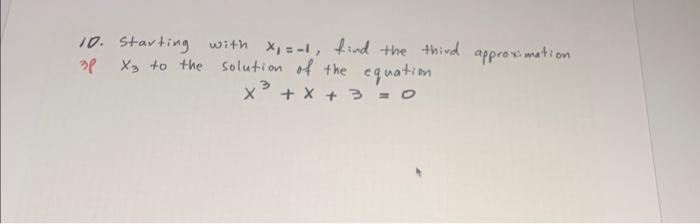 10. Starting with x₁ = -1, find the third approximation
3P x₃ to the solution of the equation
x³ + x + 3 = 0